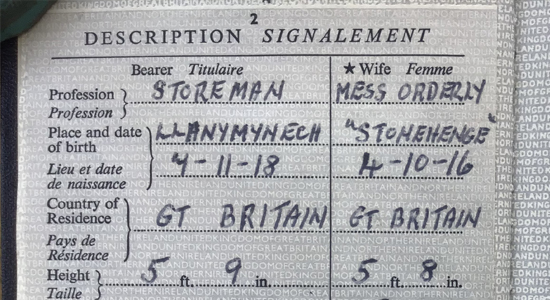 2
DESCRIPTION SIGNALEMENT
Bearer Titulaire ★Wife Femme
Profession STOREMAN MESS ORDERLY
Profession
Place and date of birth LLANYMYNECH "STONEHENGE"
Lieu et date de naissance 4-11-18 4-10-16
Country of Residence GT BRITAIN GT BRITAIN
Pays de Résidence
Height 5 ft. 9 in. 5 ft. 8 in.
Taille